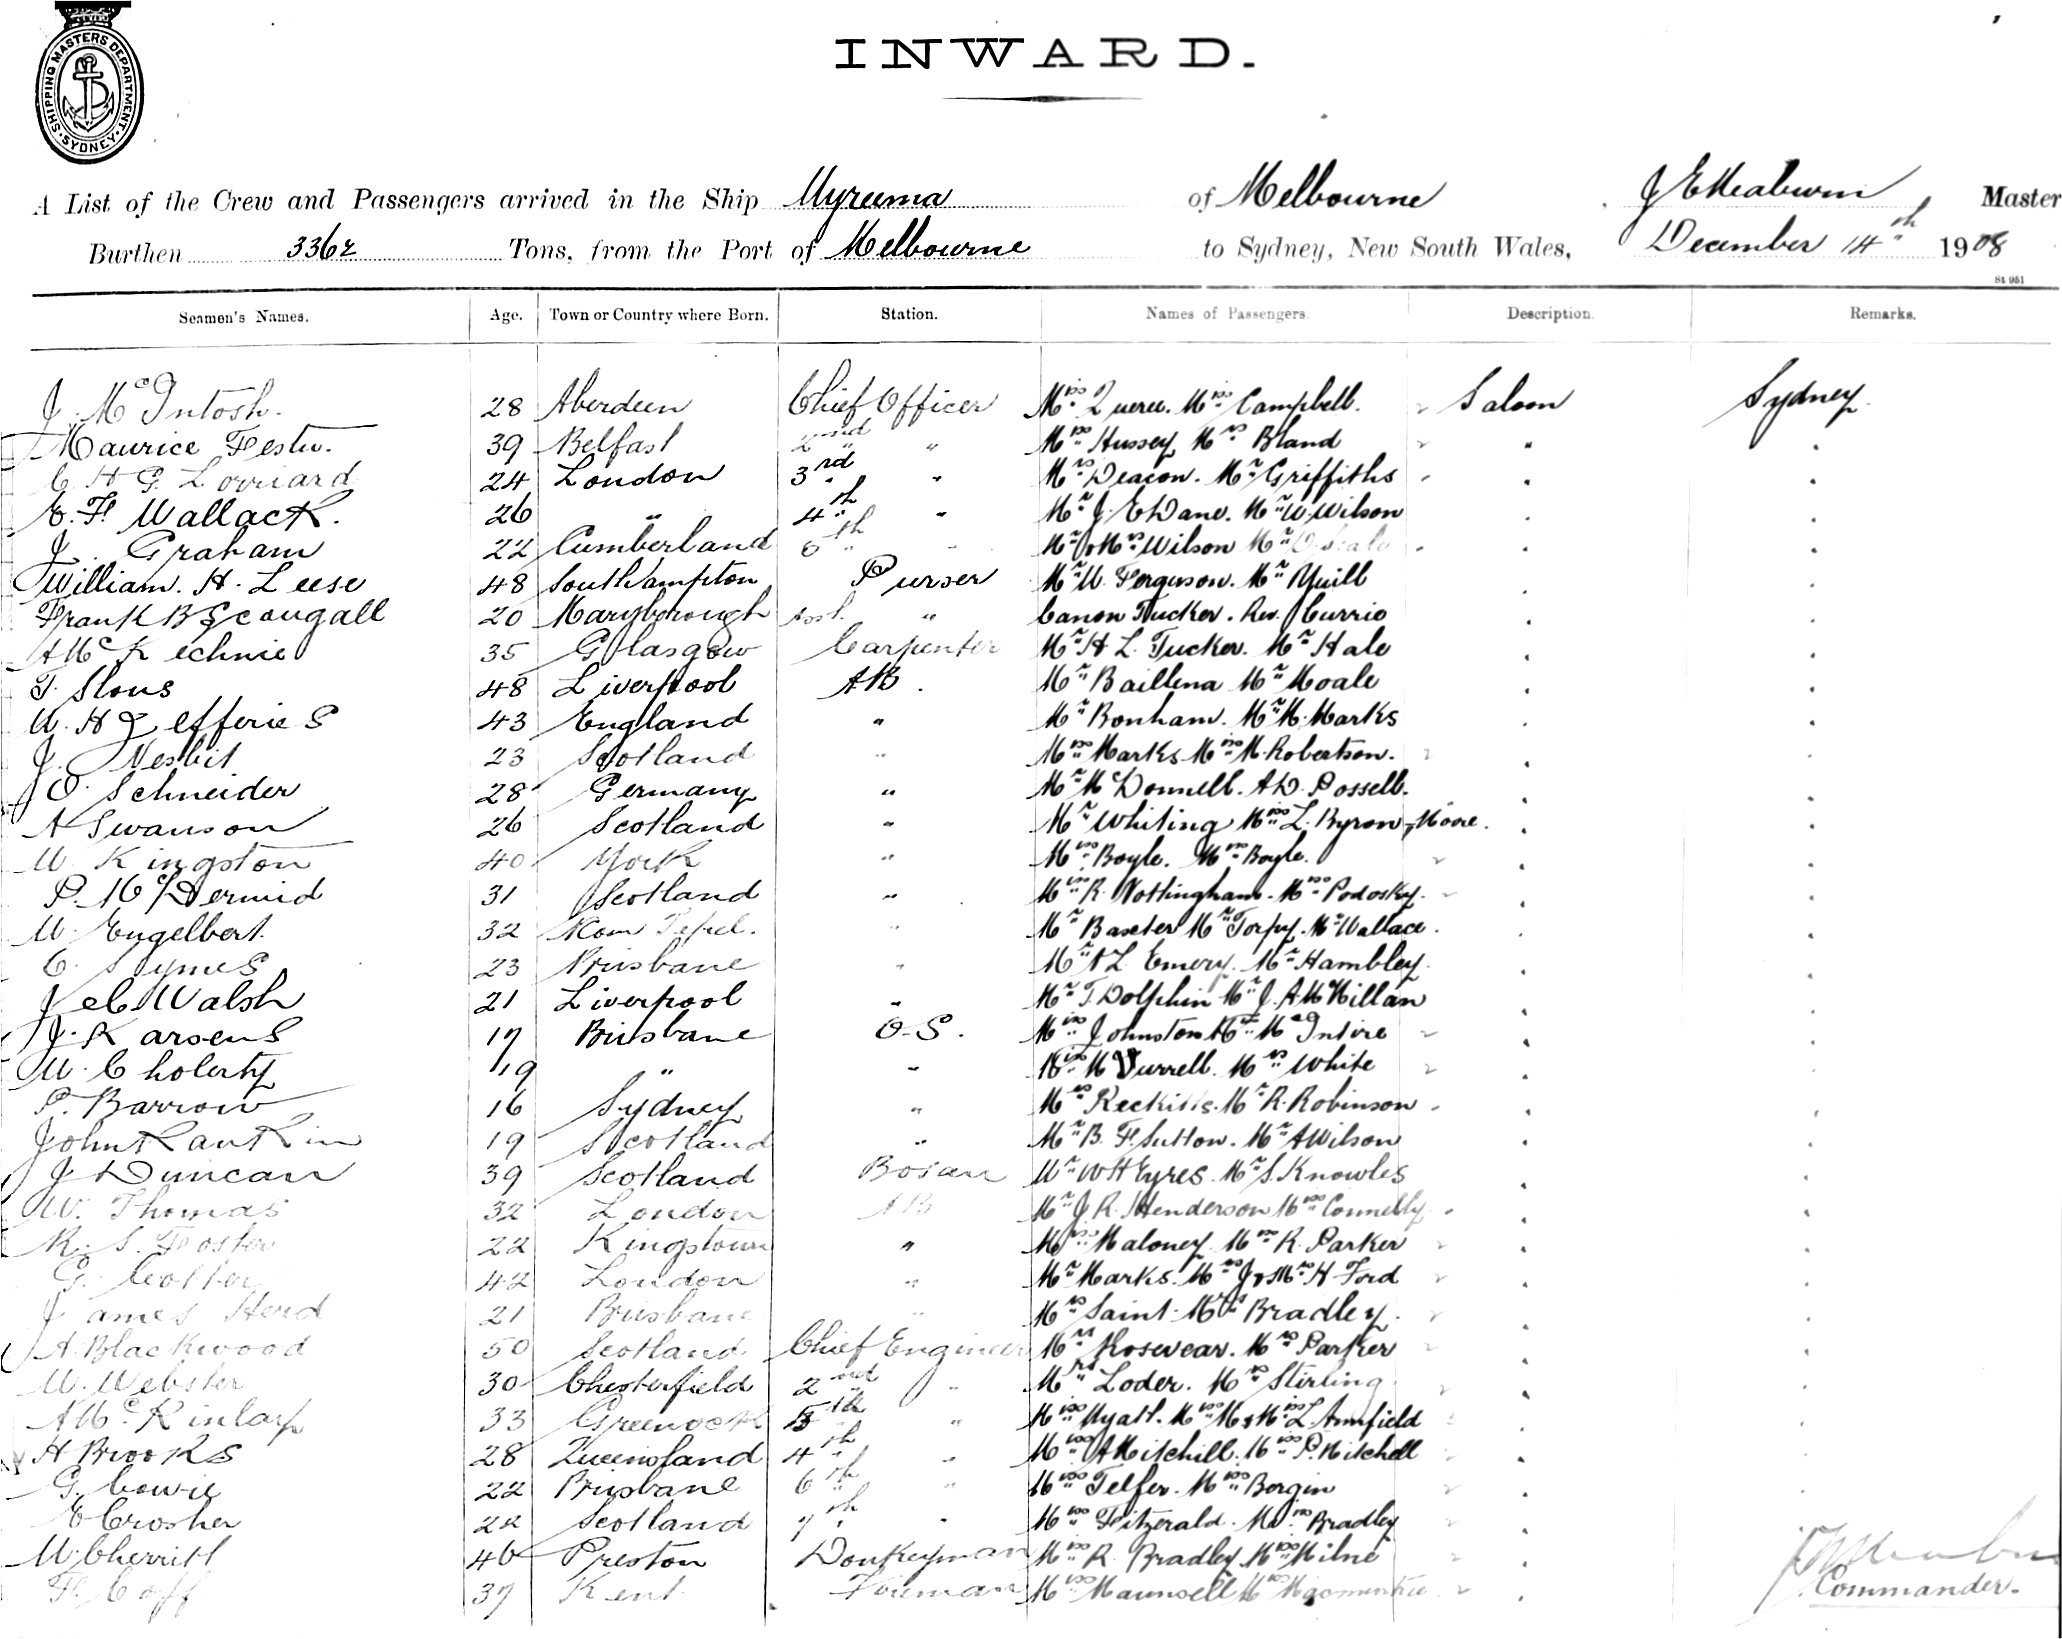 SHIPPING MASTERS DEPARTMENT
SYDNEY
INWARD.
A List of the Crew and Passengers arrived in the Ship Wyreema of Melbourne J E Meaburn Master
Burthen 3362 Tons, from the Port of Melbourne to Sydney, New South Wales, December 14th 1908
St 951
Seamen's Names. Age. Town or Country where Born. Station. Names of Passengers. Description. Remarks.
J. McIntosh. 28 Aberdeen Chief Officer Miss Queree. Miss Campbell. Saloon Sydney.
Maurice 39 Belfast 2nd " Miss Hussey Mrs Bland "
C H G Lorriard 24 London 3rd " Mrs Deacon. Mr Griffiths
E. F. Wallack. 26 " 4th " Mr J. E Dane. Mr W. Wilson
J. Graham 22 Cumberland 5th " Mr & Mrs Wilson Mr
William. H. Leese 48 Southampton Purser Mr W. Ferguson. Mr Yuill
Frank B Scougall 20 Maryborough Asst. " Canon Tucker. Rev. Currie
A McKechnie 35 Glasgow Carpenter Mr H L. Tucker. Mr Hale
T. Slous 48 Liverpool AB. Mr Baillena Mr Moale
W. H Jefferies 43 England " Mr Bonham. Mr M. Marks
J. Nesbit 23 Scotland " Miss Marks Miss M. Robertson.
O. Schneider 28 Germany " Mr McDonnell. A D. Possell.
A Swanson 26 Scotland " Mr Whiting Miss L. Byron-Moore.
W. Kingston 40 York " Miss Boyle. Miss Boyle.
P. McDermid 31 Scotland " Miss R. Nottingham. Miss Podosky.
W. Engelbert 32 " Mr Baxter Mr Torpy. Mr Wallace.
C. Symes 23 Brisbane " Mr A L Emery. Mr Hambley.
J e C Walsh 21 Liverpool " Mr T. Dolphin Mr J. A McMillan
J. Karsens 17 Brisbane O.S. Miss Johnston Mr McIntire
W. Cholerty 19 " " Miss M Durrell. Mrs White
P. Barrow 16 Sydney " Mrs Reckitts. Mr R. Robinson
John Rankin 19 Scotland " Mr B. F. Sutton. Mr A Wilson
J Duncan 39 Scotland Bosan Mr W H Eyres. Mr S. Knowles
W. Thomas 32 London AB Mr J. R. Henderson Miss Connelly
R. S. Foster 22 Kingstown " Miss Maloney. Miss R. Parker
G. Cotter 42 London " Mr Marks. Mrs J & Mrs H. Ford
James Herd 21 Brisbane " Mrs Saint. Mrs Bradley.
A. Blackwood 50 Scotland Chief Engineer Mrs Rosevear. Mrs Parker
W. Webster 30 Chesterfield 2nd " Mrs Loder. Mrs Stirling
A McKinlay 33 Greenock 3rd " Miss Wyatt. Miss M & Miss L. Armfield
H Brooks 28 Queensland 4th " Miss A Mitchill. Miss P. Mitchell
G. Cowie 22 Brisbane 6th " Miss Telfer. Miss Bergin
E Crosher 22 Scotland 7th " Miss Fitzerald. Miss Bradley
W. Cherritt 46 Preston Donkeyman Miss R. Bradley Miss Milne
F. Goff 37 Kent Foreman Miss Maunsell Miss
Commander.